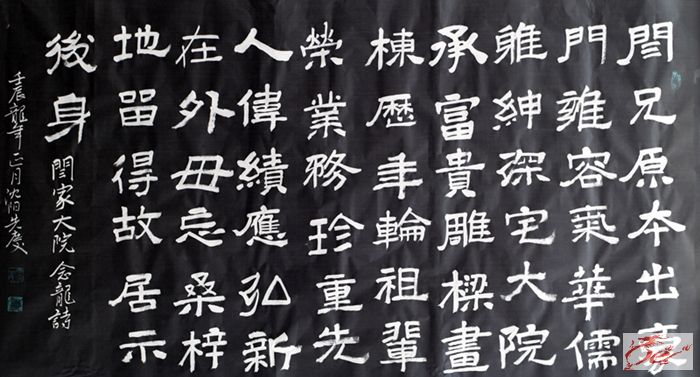 閆兄原本出豪
門雍容氣華儒
雅紳深宅大院
承富貴雕樑畫
棟歷年輪祖輩
榮業務珍重先
人偉績應弘新
在外毋忘桑梓
地留得故居示
後身 閆家大院 念龍詩
壬辰龍年正月